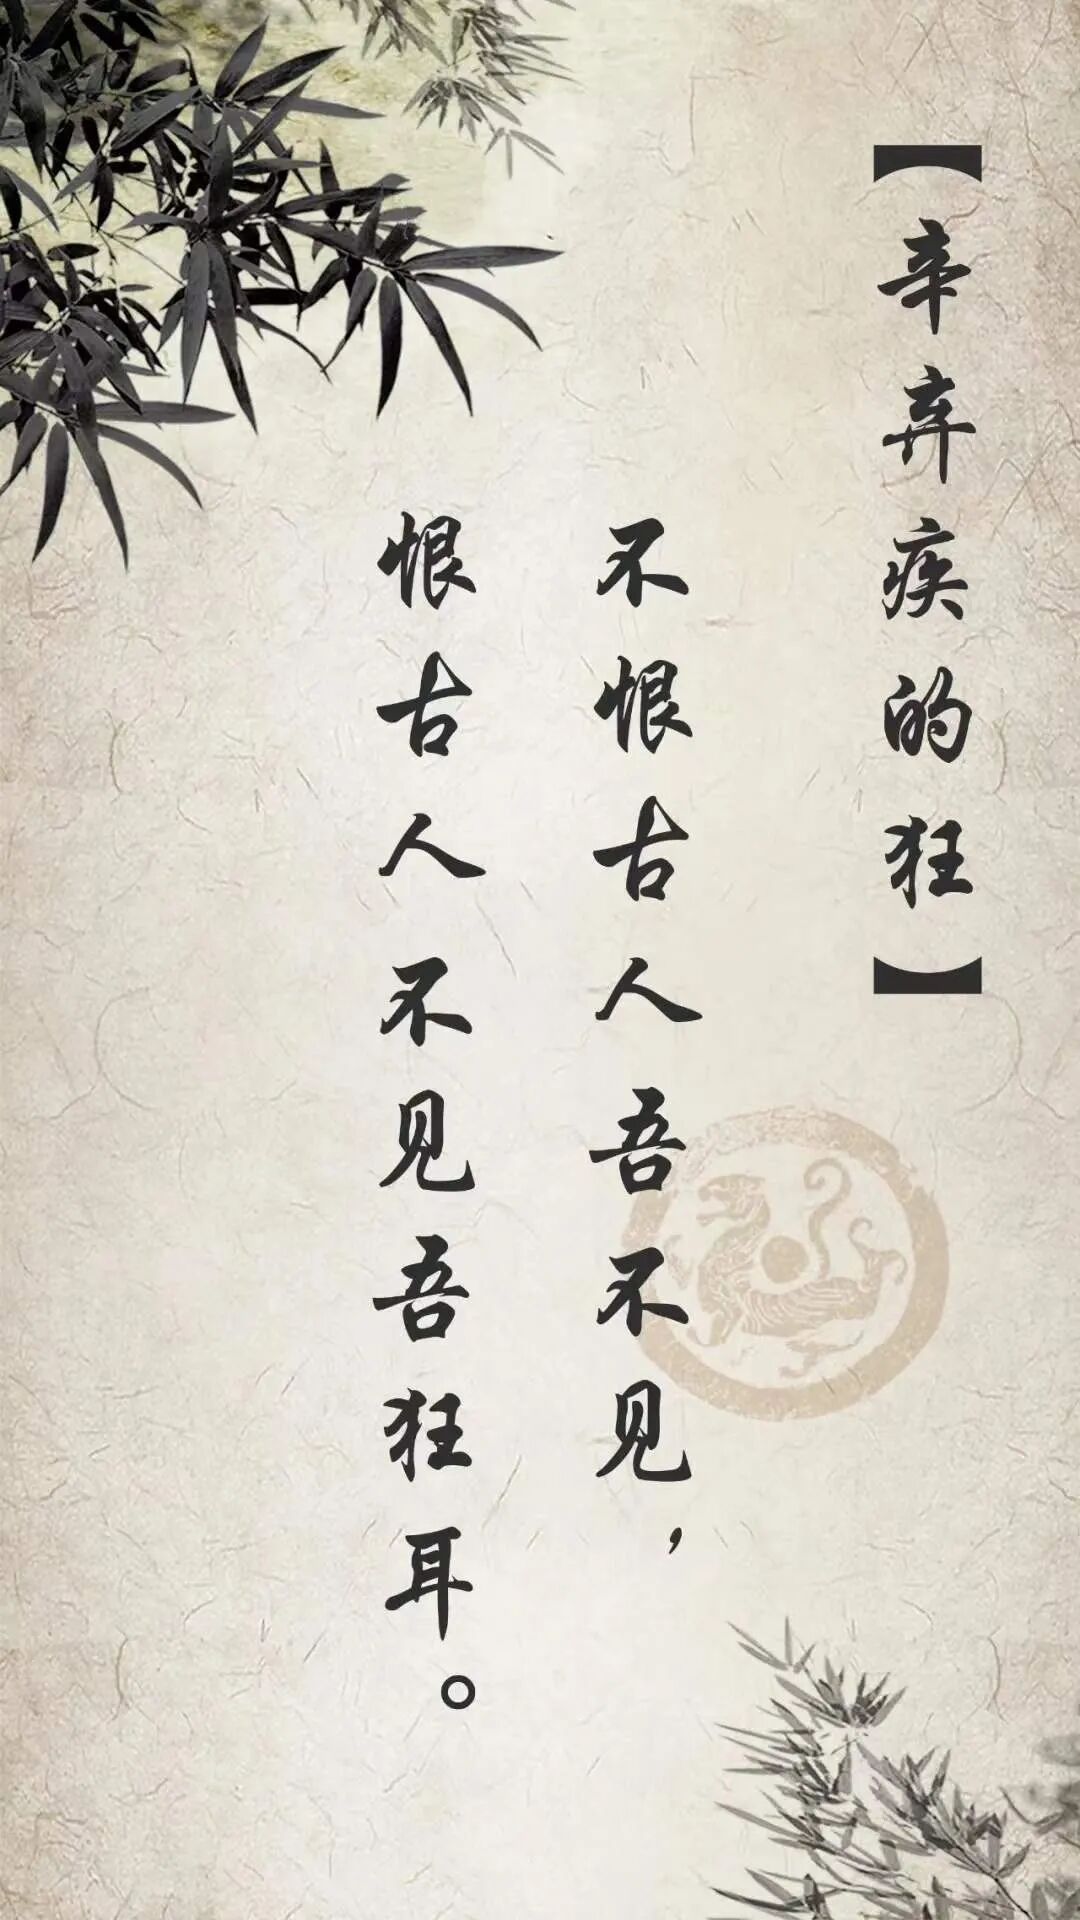 【辛弃疾的狂】
不恨古人吾不见，
恨古人不见吾狂耳。